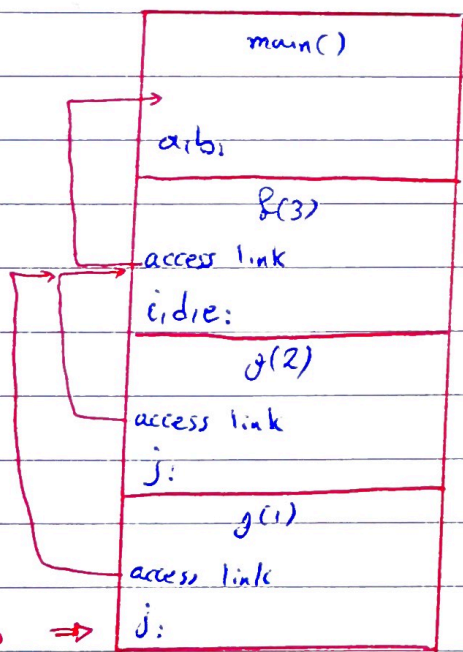 main()
a,b,
f(3)
access link
i,d,e:
g(2)
access link
j:
g(1)
access link
j: